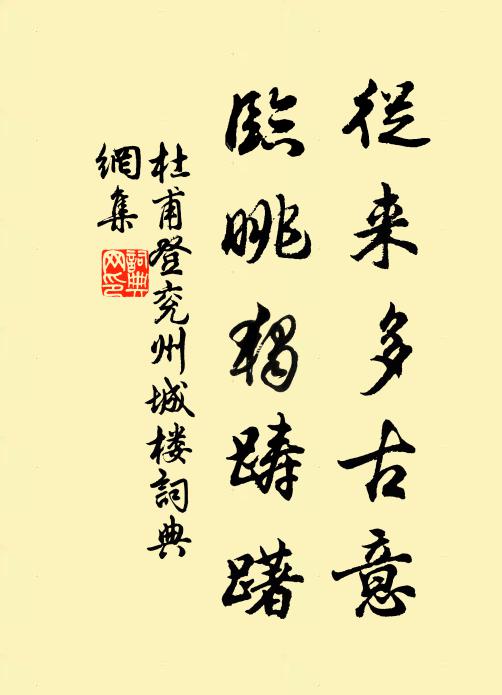 從来多古意
臨眺獨躊躇
杜甫登兖州城楼詞典
網集
詞典
网印